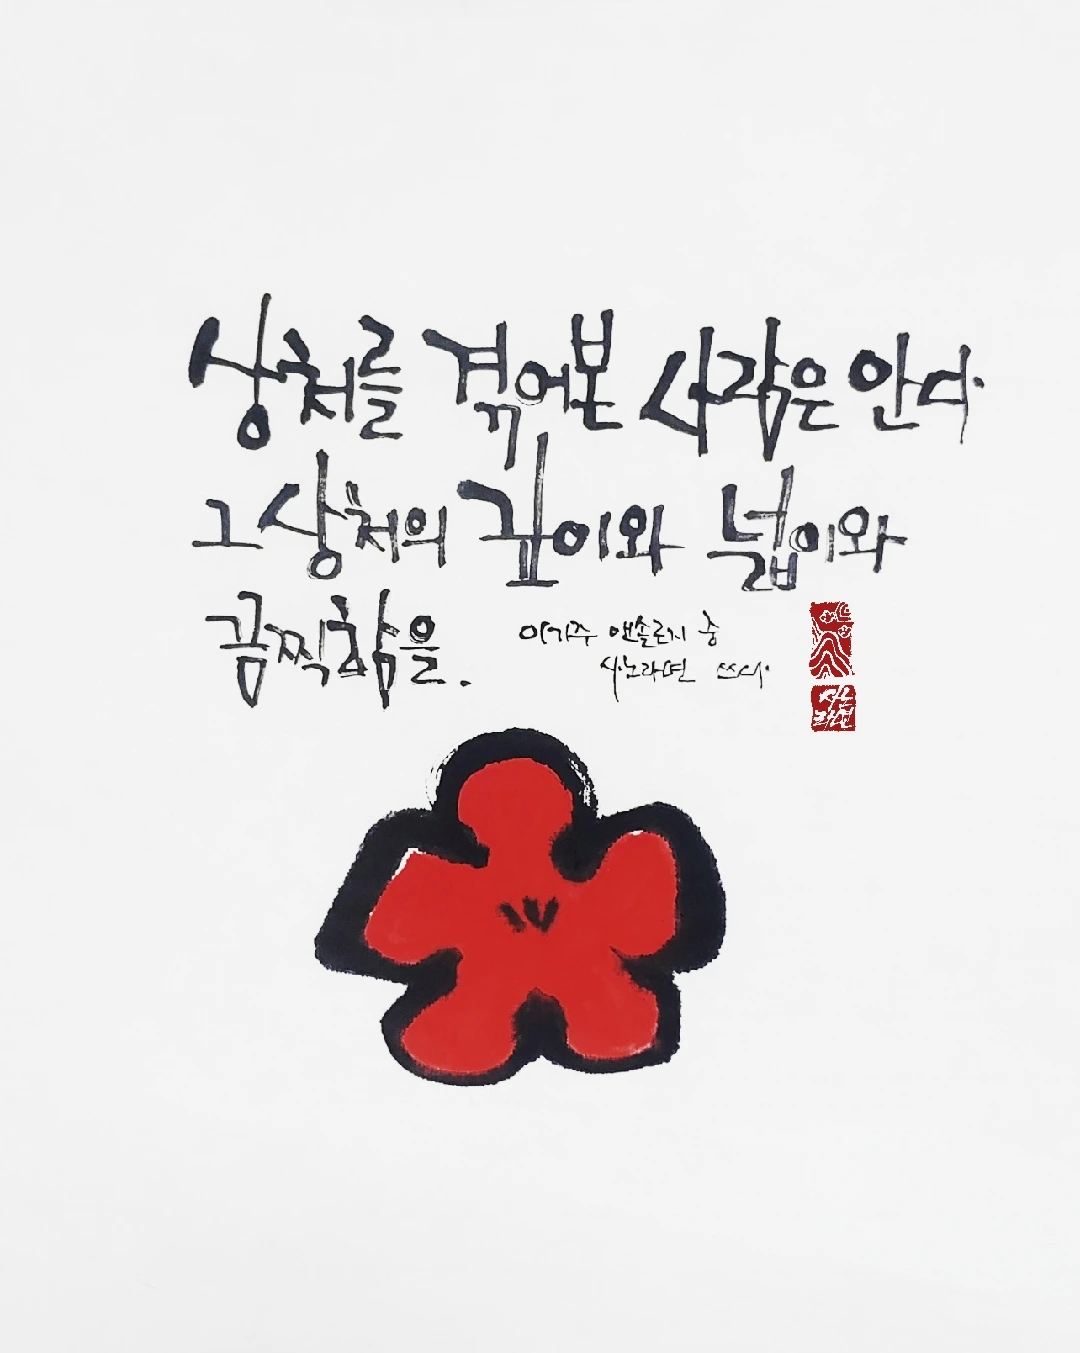 상처를 겪어본 사람은 안다
그 상처의 깊이와 넓이와
끔찍함을.
이기주 앤솔로지 중
사노라면 쓰다
사노
라면